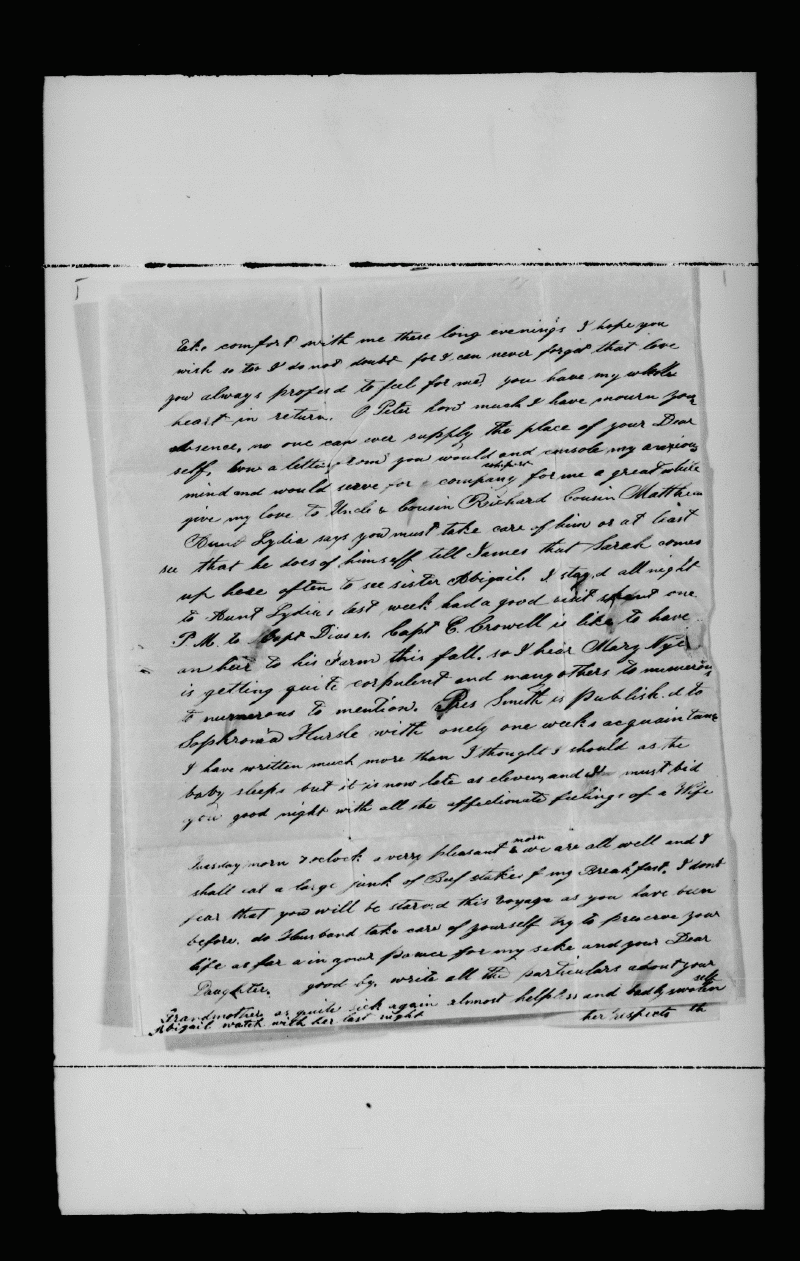 take comfort with me these long evenings I hope you
wish so too I do not doubt for I can never forget that love
you always profesd to feel for me, you have my whole
heart in return. O Peter how much I have mourn your
absence, no one can ever supply the place of your Dear
self, how a letter from you would and consols my anxious
mind and would serve for company for me a great while
give my love to Uncle & Cousin Richard Cousin Matthew
Aunt Lydia says you must take care of him or at least
see that he does of himself till James that Sarah comes
up hose often to see sister Abigail. I stayd all night
to Aunt Lydias last week had a good visit spent one
P.M. to Capt Dioses. Capt C. Crowell is like to have
an heir to his Farm this fall. so I hear Mary Nye
is getting quite corpulent and many others to numerous
to numerous to mention. Smith is Publish.d to
Sophronia with onely one weeks acquaintance
I have written much more than I thought I should as the
baby sleeps but it is now late as eleven and I must bid
you good night with all the affectionate feelings of a Wife
Tuesday morn 7 oclock a very pleasant morn & we are all well and I
shall eat a large junk of Beef stakes for my Breakfast. I dont
fear that you will be starv.d this voyage as you have been
before. do Husband take care of yourself try to preserve your
life as far a in your power for my sake and your Dear
Daughter. good by. write all the particulars about your
self
Grandmother is quite sick again almost helpless and badly swolen
Abigail watch with her last night her